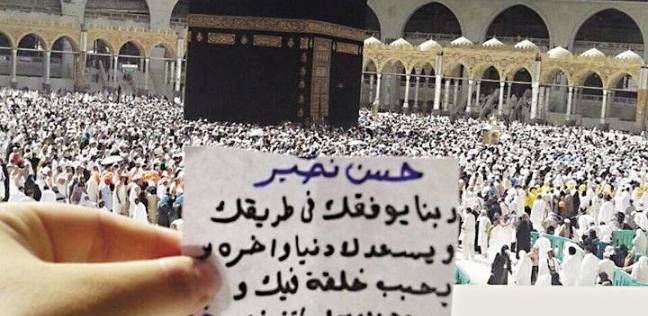 حسن نصير
ربنا يوفقك فى طريقك
ويسعدك دنيا واخره و
يحبب خلقة فيك و